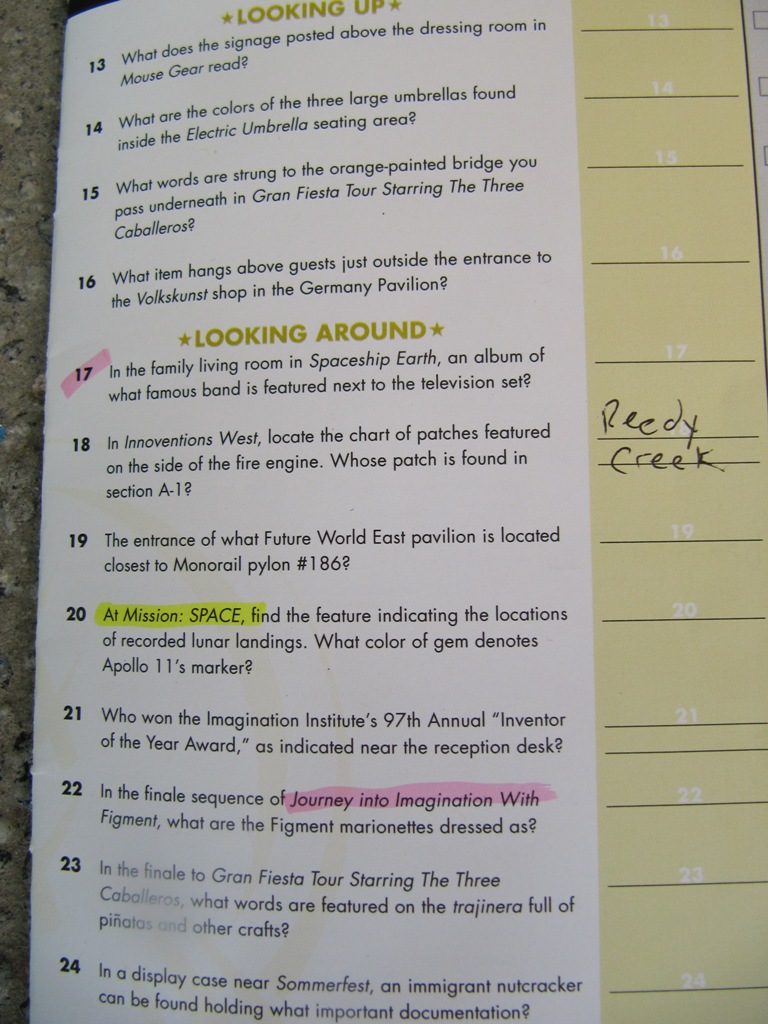 ★LOOKING UP★
13 What does the signage posted above the dressing room in
Mouse Gear read?
14 What are the colors of the three large umbrellas found
inside the Electric Umbrella seating area?
15 What words are strung to the orange-painted bridge you
pass underneath in Gran Fiesta Tour Starring The Three
Caballeros?
16 What item hangs above guests just outside the entrance to
the Volkskunst shop in the Germany Pavilion?
★LOOKING AROUND★
17 In the family living room in Spaceship Earth, an album of
what famous band is featured next to the television set?
18 In Innoventions West, locate the chart of patches featured
on the side of the fire engine. Whose patch is found in
section A-1?
19 The entrance of what Future World East pavilion is located
closest to Monorail pylon #186?
20 At Mission: SPACE, find the feature indicating the locations
of recorded lunar landings. What color of gem denotes
Apollo 11's marker?
21 Who won the Imagination Institute's 97th Annual "Inventor
of the Year Award," as indicated near the reception desk?
22 In the finale sequence of Journey into Imagination With
Figment, what are the Figment marionettes dressed as?
23 In the finale to Gran Fiesta Tour Starring The Three
Caballeros, what words are featured on the trajinera full of
piñatas and other crafts?
24 In a display case near Sommerfest, an immigrant nutcracker
can be found holding what important documentation?
13
14
15
16
17
Reedy
Creek
19
20
21
22
23
24